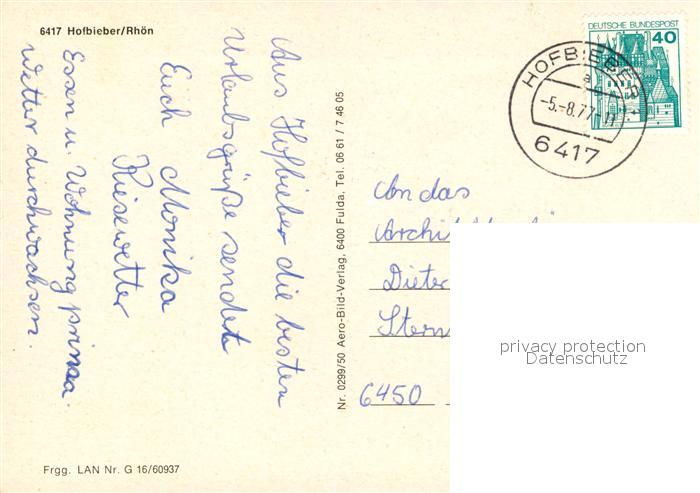 6417 Hofbieber/Rhön
Aus Hofbieber die besten
Urlaubsgrüße sendet
Euch Monika
Kiesewetter
Essen u. Wohnung prima.
Wetter durchwachsen.
Frgg. LAN Nr. G 16/60937
Nr. 0299/50 Aero-Bild-Verlag, 6400 Fulda, Tel. 06 61 / 7 46 05
DEUTSCHE BUNDESPOST
40
HOFBIEBER 1
a
-5.-8.77-11
6417
An das
Dieter
Stern
6450
privacy protection
Datenschutz